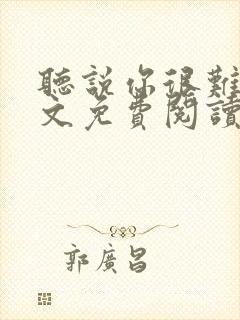 聽説你很難
文免費閱讀
郭廣昌